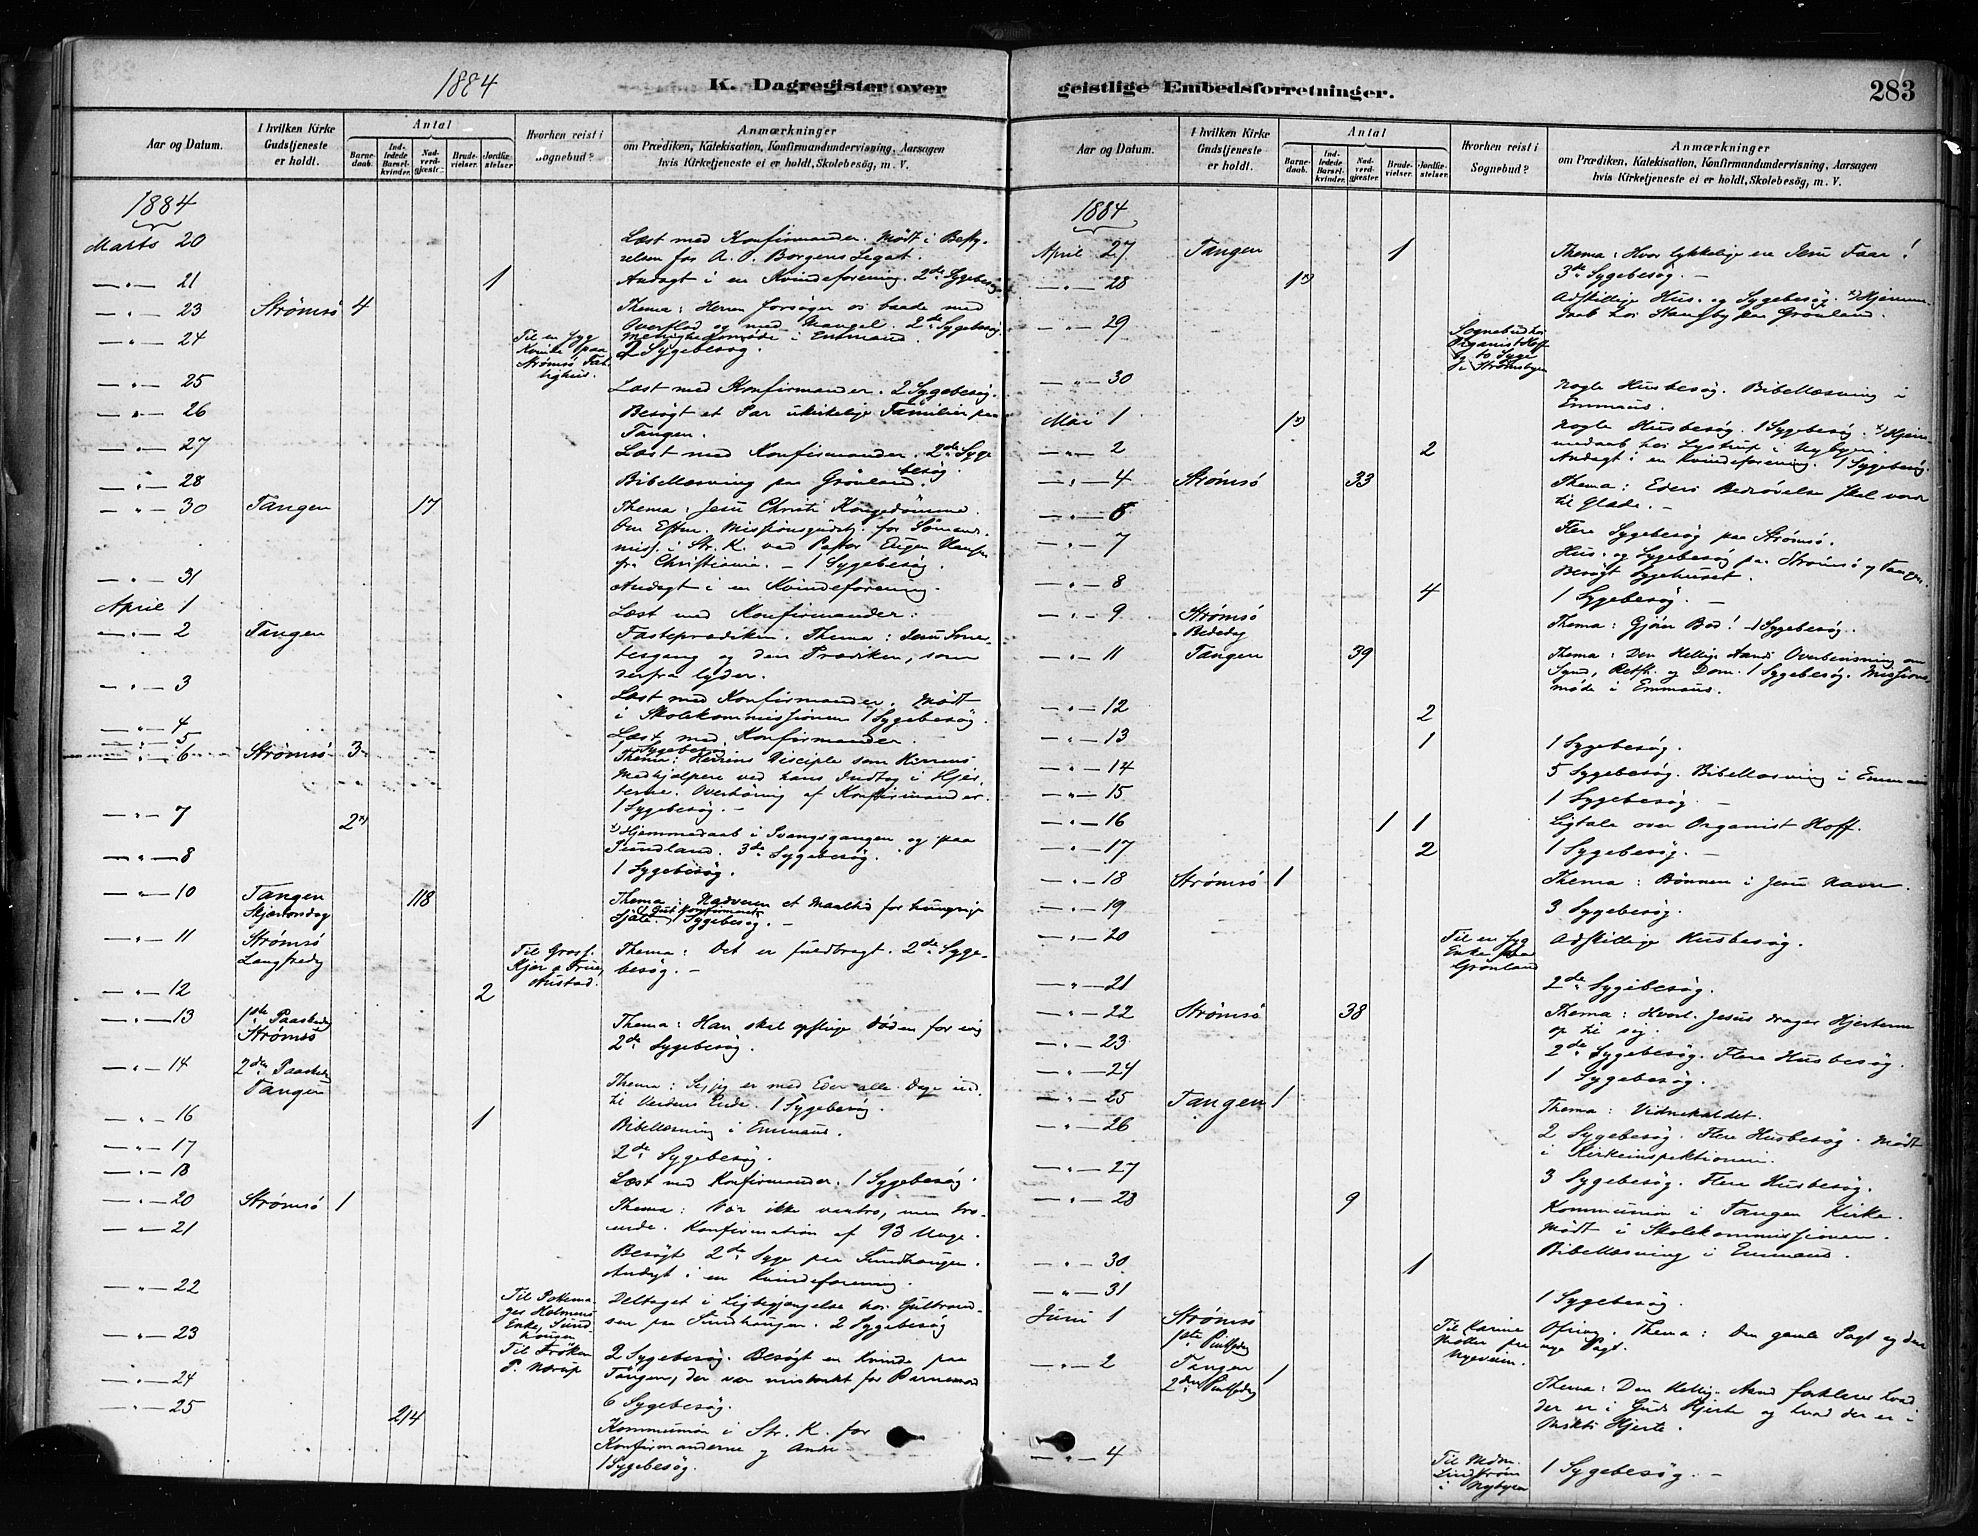 1884
K. Dagregister over
Aar og Datum.
I hvilken Kirke Gudstjeneste er holdt.
Antal
Barnedaab.
Indledede Barselkvinder.
Nadverdgjæster.
Brudevielser.
Jordfæstelser
Hvorhen reist i Sognebud?
Anmærkninger
om Prædiken, Katekisation, Konfirmandundervisning, Aarsagen
hvis Kirketjeneste ei er holdt, Skolebesög, m. V.
1884
Marts 20 Læst med Konfirmander. Mödt i Besty-
relsen for A. O. Borgens Legat.
— " — 21 1 Andagt i en Kvindeforening. 2de Sygebesög
— " — 23 Strömsö 4 Thema: Herren forsöger os baade med
Overflod og med Mangel. 2de Sygebesög.
— " — 24 Til en syg Kvinde paa Strömsö Fattighus. Menighedsmöde i Emmaus.
2 Sygebesög.
— " — 25 Læst med Konfirmander. 2 Sygebesög.
— " — 26 Besögt et Par ukirkelige Familier paa
Tangen.
— " — 27 Læst med Konfirmander. 2de Syge
besög.
— " — 28 Bibellæsning paa Grönland.
— " — 30 Tangen 17 Thema: Jesu Christi Kongedömme.
Om Eftm. Missionsgudstj. for Sömands
miss. i Str. K. ved Pastor Eugen Hansen
fra Christiania. — 1 Sygebesög.
— " — 31 Andagt i en Kvindeforening.
April 1 Læst med Konfirmander.
— " — 2 Tangen Fasteprædiken. Thema: Jesu
og den Prædiken, som
derfra lyder.
— " — 3 Læst med Konfirmander. Mödt
i Skolekommissionen 1 Sygebesög.
— " — 4 Læst med Konfirmander.
— " — 5 1 Sygebesög
— " — 6 Strömsö 3 Thema: Herrens Disciple som Herrens
Medhjælpere ved hans Indtog i Hjer-
terne. Overhöring af Konfirmander.
1 Sygebesög. —
— " — 7 2x) x) Hjemmedaab i Svangsgangen og paa
Sundland. 3de Sygebesög.
— " — 8 1 Sygebesög.
— " — 10 Tangen Skjærtorsdag 118 Thema: Nadveren et Maaltid for hungrige
Sjæle. 1 Sygebesög. —
— " — 11 Strömsö Langfredag Til Gross. Kjær og Frue, Thema: Det er fuldbragt. 2de Syge-
besög. —
— " — 12 2
— " — 13 1ste Paaskedag Strömsö Thema: Han skal opsluge Döden for evig
2de Sygebesög.
— " — 14 2den Paaskedag Tangen Thema: Se, jeg er med Eder alle Dage ind-
til Verdens Ende. 1 Sygebesög.
— " — 16 1 Bibellæsning i Emmaus.
— " — 17 2de Sygebesög.
— " — 18 Læst med Konfirmander. 1 Sygebesög.
— " — 20 Strömsö 1 Thema: Vær ikke vantro, men tro-
ende. Konfirmation af 93 Unge.
— " — 21 Besögt 2de Syge paa Sundhaugen.
Andagt i en Kvindeforening.
— " — 22 Til Holmens Enke, Sundhaugen Deltaget i Ligbegjængelse hos Gulbrand-
sen paa Sundhaugen. 2 Sygebesög
— " — 23 Til Fröken P. Nörup 2 Sygebesög. Besögt en Kvinde paa
Tangen, der var mistænkt for Barnemord
— " — 24 6 Sygebesög.
— " — 25 214 Kommunion i Str. K. for
Konfirmanderne og Andre
1 Sygebesög.
geistlige Embedsforretninger.
283
Aar og Datum.
I hvilken Kirke Gudstjeneste er holdt.
Antal
Barnedaab.
Indledede Barselkvinder.
Nadverdgjæster.
Brudevielser.
Jordfæstelser.
Hvorhen reist i Sognebud?
Anmærkninger
om Prædiken, Katekisation, Konfirmandundervisning, Aarsagen
hvis Kirketjeneste ei er holdt, Skolebesög, m. V.
1884
April 27 Tangen 1 Thema: Hvor lykkelige ere Jesu Faar!
3de Sygebesög. —
— " — 28 1x) Adskillige Hus- og Sygebesög. x) Hjemme-
daab hos paa Grönland.
— " — 29 Sognebud hos Organist Hoff og to Syge i Strömsbyen
— " — 30 Nogle Husbesög. Bibellæsning i
Emmaus.
Mai 1 1x) Nogle Husbesög. 1 Sygebesög. x) Hjem-
medaab hos Lystrup i Nybyen.
— " — 2 2 Andagt i en Kvindeforening. 1 Sygebesög.
— " — 4 Strömsö 33 Thema: Eders Bedrövelse skal vorde
til Glæde. —
— " — 6 Flere Sygebesög paa Strömsö.
— " — 7 Hus- og Sygebesög paa Strömsö og Tangen.
Besögt Sygehuset.
— " — 8 4 1 Sygebesög. —
— " — 9 Strömsö Bededag Thema: Gjörer Bod! 1 Sygebesög.
— " — 11 Tangen 39 Thema: Den Hellig Aands Overbevisning om
Synd, Retf. og Dom. 1 Sygebesög. Missions-
möde i Emmaus.
— " — 12 2
— " — 13 1 1 Sygebesög.
— " — 14 5 Sygebesög. Bibellæsning i Emmaus
— " — 15 1 Sygebesög. —
— " — 16 1 1 Ligtale over Organist Hoff.
— " — 17 2 1 Sygebesög. —
— " — 18 Strömsö 1 Thema: Bönnen i Jesu Navn.
— " — 19 3 Sygebesög.
— " — 20 Til en syg Enke paa Grönland Adskillige Husbesög.
— " — 21 2de Sygebesög.
— " — 22 Strömsö 38 Thema: Hvorl. Jesus drager Hjerterne
op til sig.
— " — 23 2de Sygebesög. Flere Husbesög.
— " — 24 1 Sygebesög.
— " — 25 Tangen 1 Thema: Vidnekaldet.
— " — 26 2 Sygebesög. Flere Husbesög. Mödt
i Kirkeinspektionen.
— " — 27 3 Sygebesög. Flere Husbesög.
— " — 28 9 Kommunion i Tangen Kirke.
Mödt i Skolekommissionen.
Bibellæsning i Emmaus.
— " — 30 1
— " — 31 1 Sygebesög.
Juni 1 Strömsö 1ste Pintsedag Til Karine Möller paa Nyeveien. Ofring. Thema: Den gamle Pagt og den
nye Pagt.
— " — 2 Tangen 2den Pintsedag 1 Thema: Den Hellig-Aand forklarer hvad
der er i Guds Hjerte og hvad der er i
Hjerte.
— " — 4 Til Mdm. Lindström i Nybyen 1 Sygebesög. —